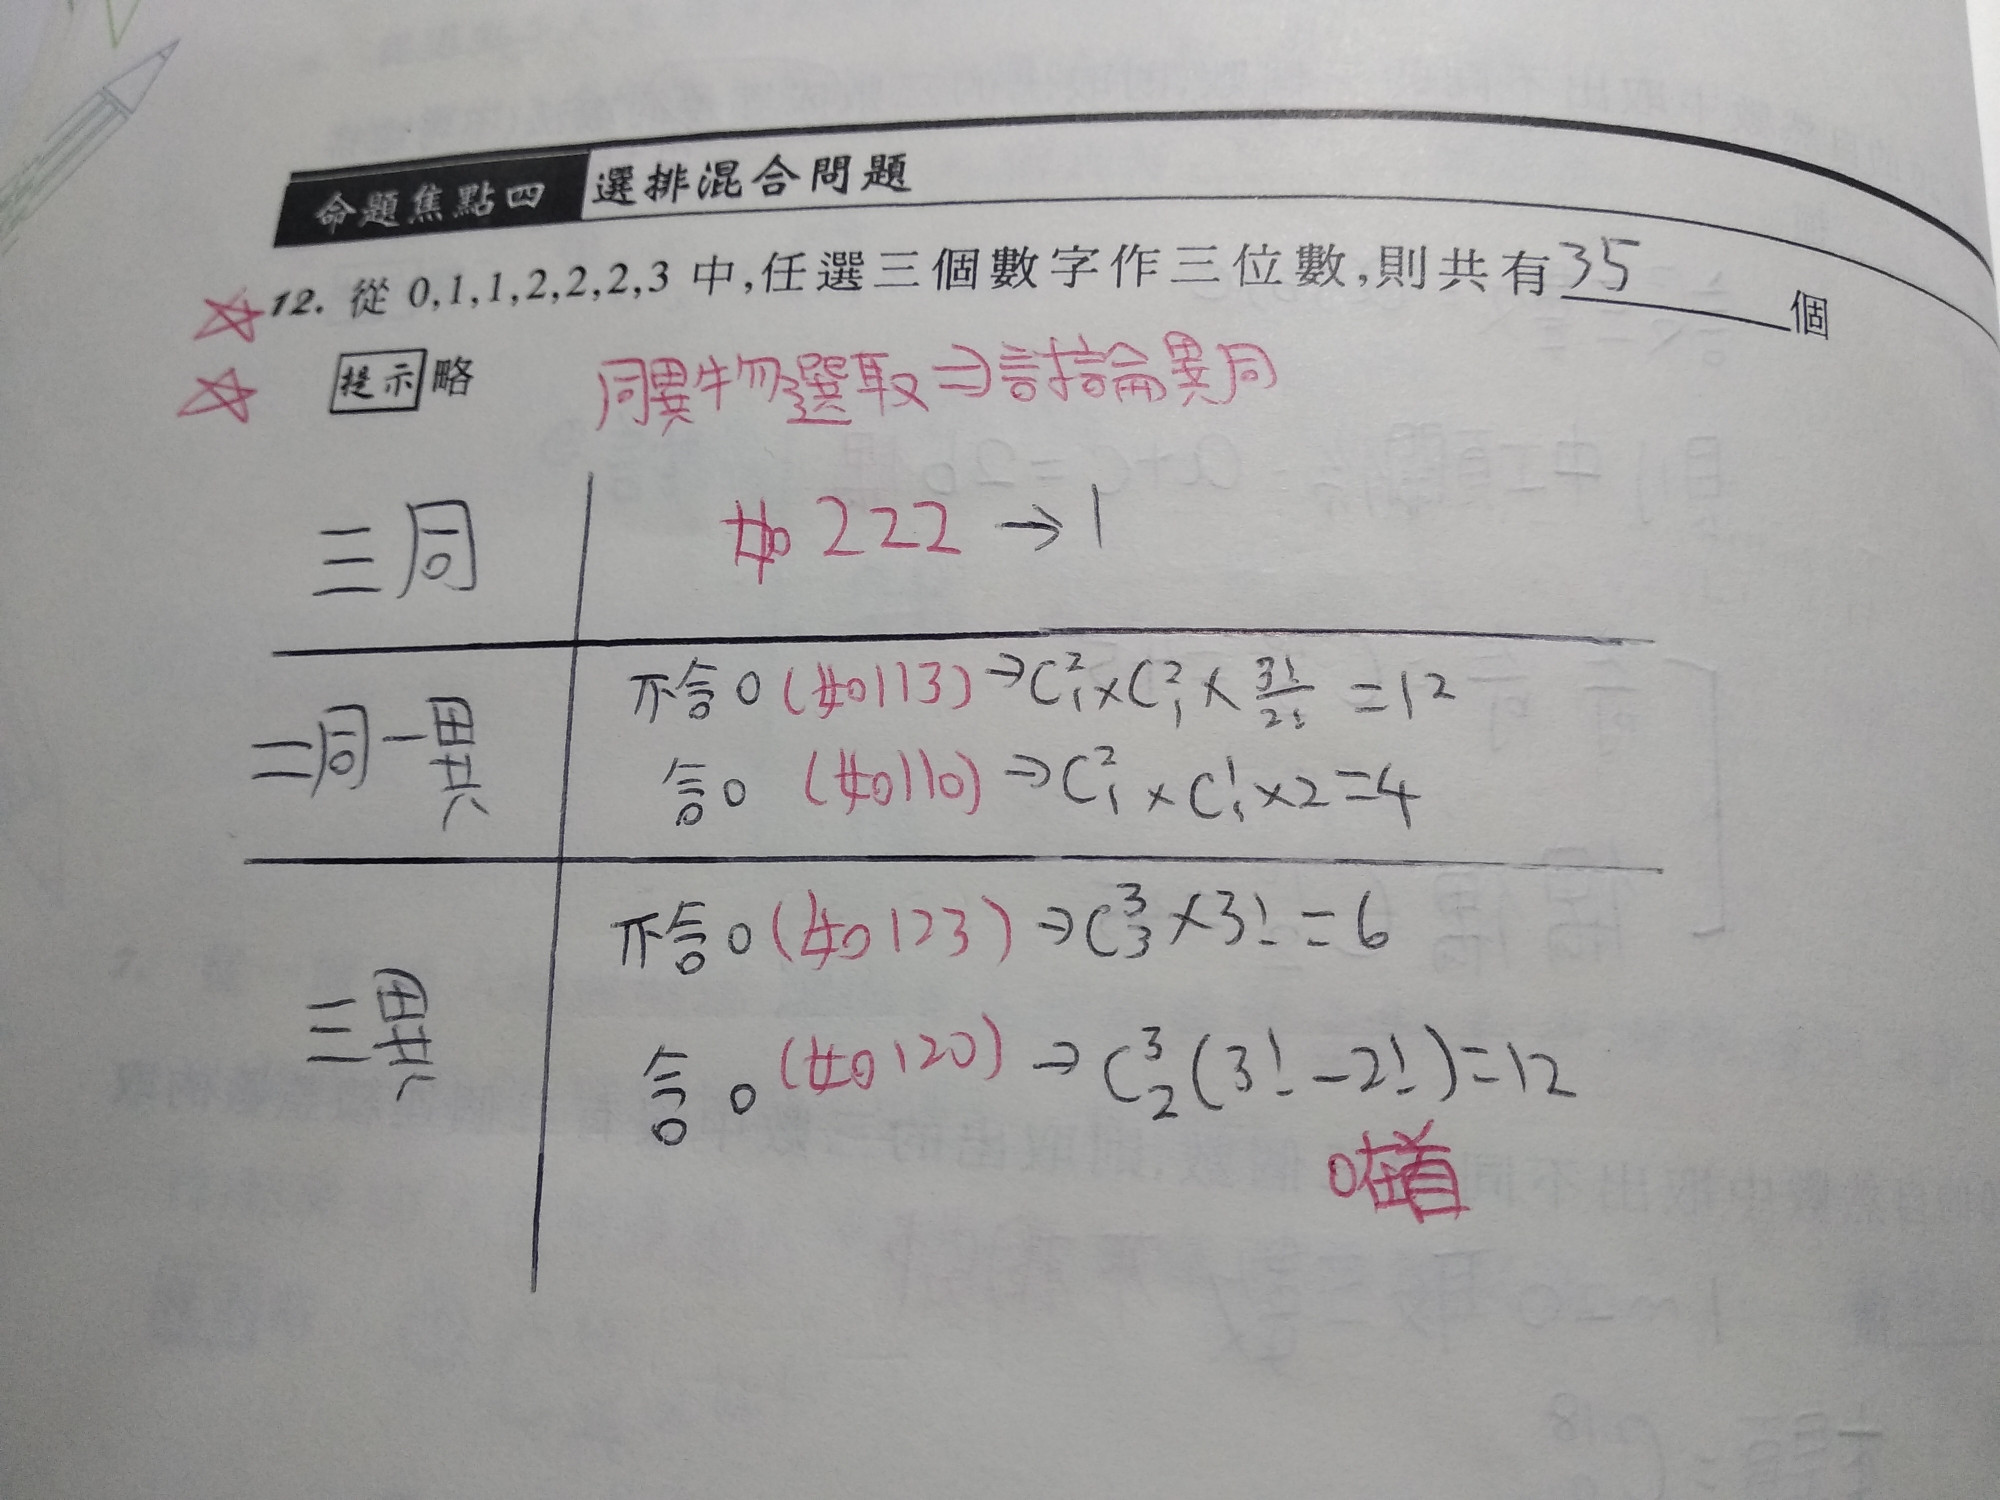 命題焦點四 選排混合問題
12. 從 0,1,1,2,2,2,3 中,任選三個數字作三位數,則共有 35 個
提示 略 同異物選取⇒討論異同
三同 如 222 → 1
二同一異 不含0 (如113) → C²₁ × C²₁ × 3!/2! = 12
含0 (如110) → C²₁ × C¹₁ × 2 = 4
三異 不含0 (如 123) → C³₃ × 3! = 6
含0 (如120) → C³₂ (3! - 2!) = 12
0在首